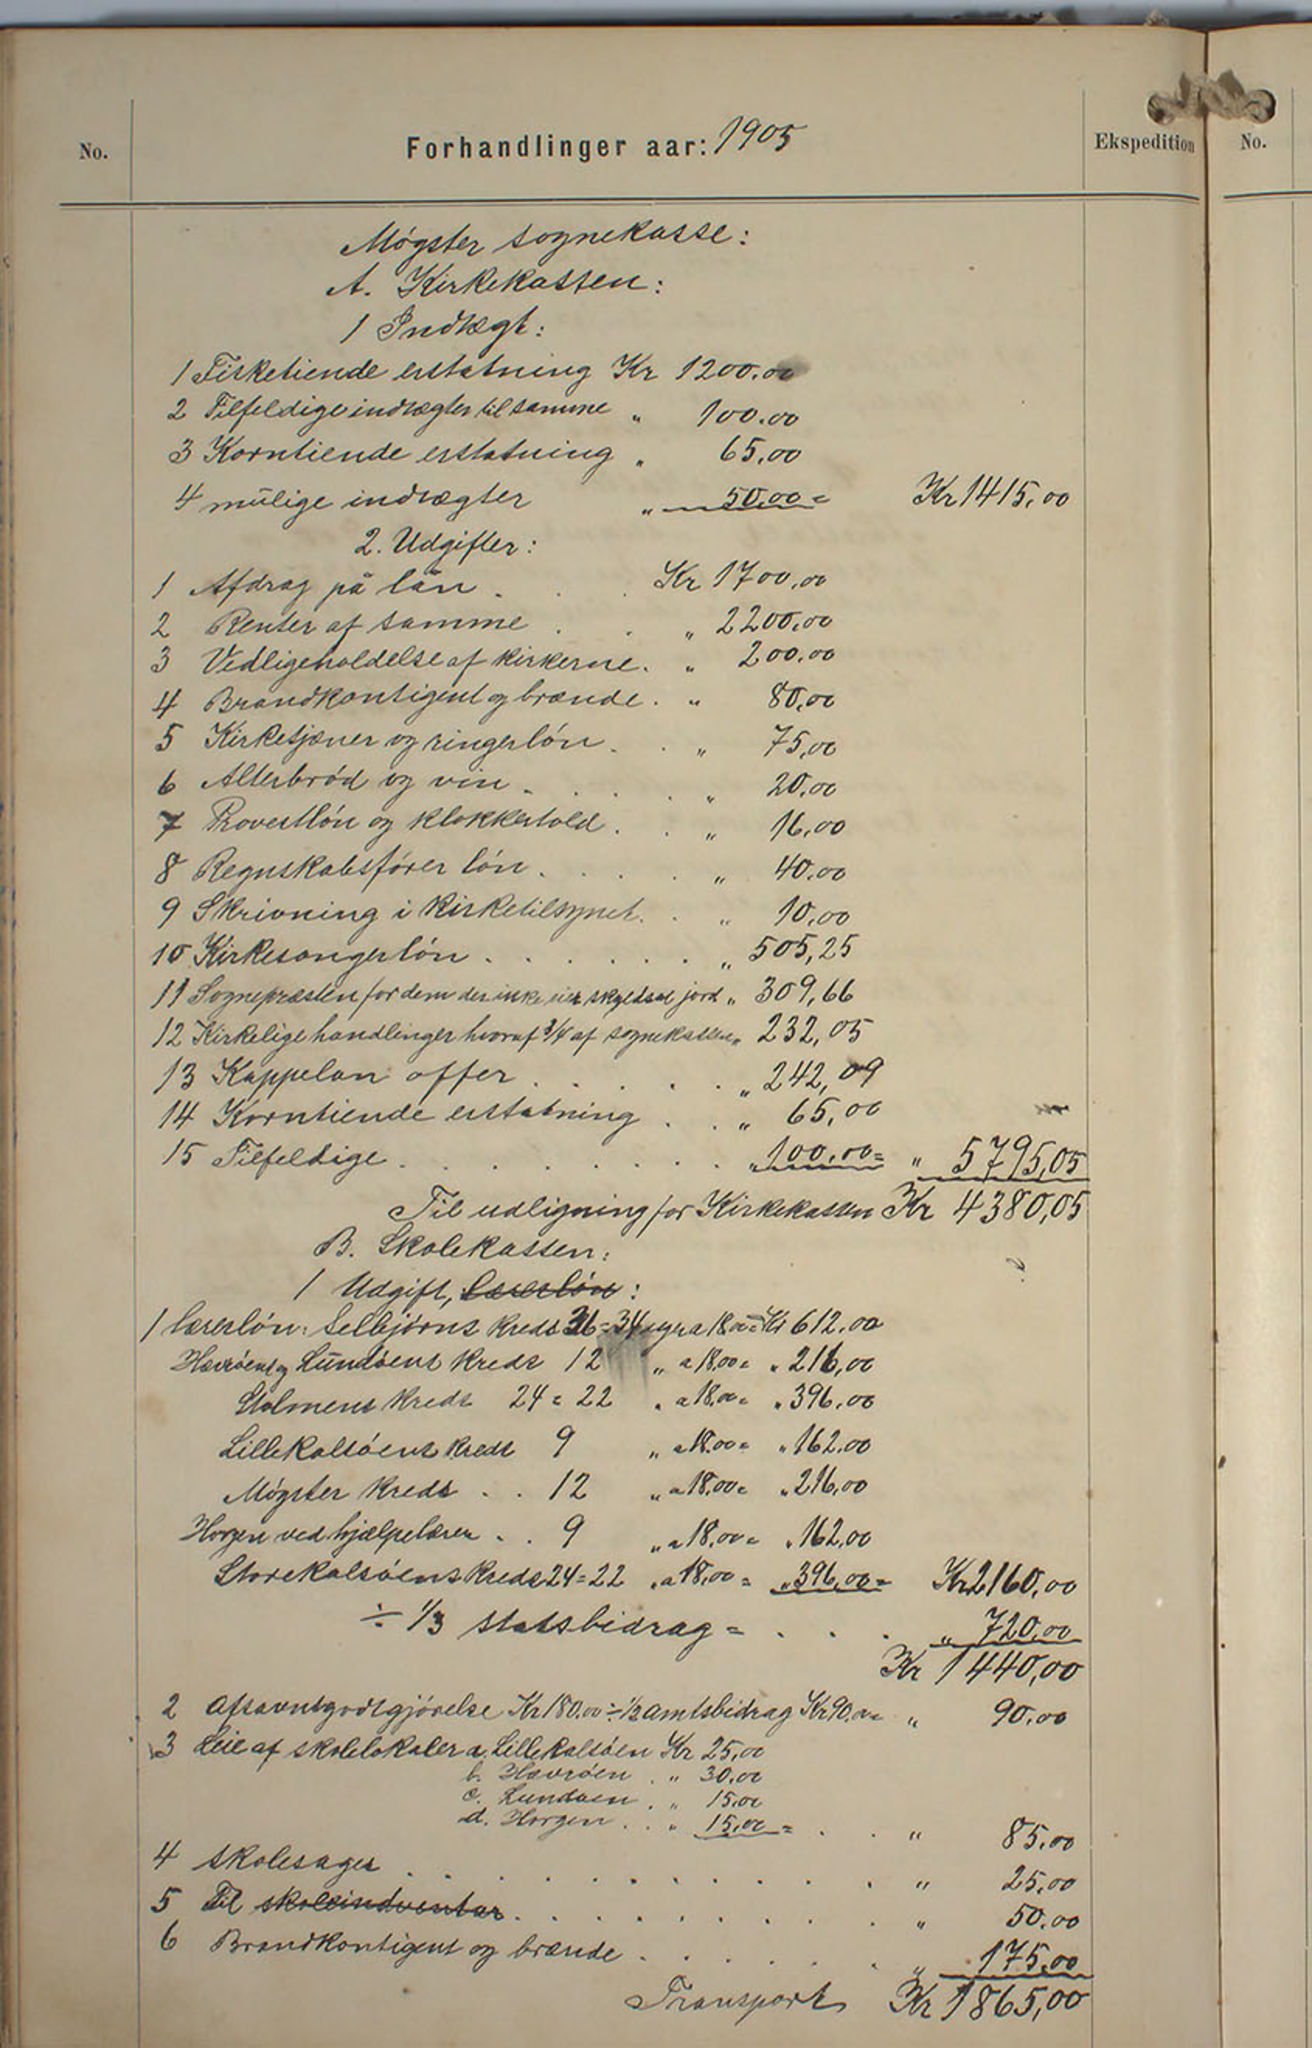 No.
Forhandlinger aar: 1905
Ekspedition
No.
Møgster sognekasse:
A. Kirkekassen:
1 Indtægt:
1 Fisketiende erstatning Kr 1200.00
2 Tilfeldige indtægter til samme " 100.00
3 Korntiende erstatning " 65,00
4 mulige indtægter " 50,00 = Kr 1415,00
2. Udgifter:
1 Afdrag på lån . . Kr 1700,00
2 Renter af samme . . " 2200,00
3 Vedligeholdelse af kirkerne. " 200,00
4 Brandkontigent og brænde. " 80,00
5 Kirketjener og ringerløn. . " 75,00
6 Alterbrød og vin. . . . " 20,00
7 Provestløn og klokkertold. . " 16,00
8 Regnskabsfører løn. . . . " 40,00
9 Skrivning i kirketilsynet. . " 10,00
10 Kirkesangerløn . . . . . . " 505,25
11 Sognepræsten for dem der inke eier skyldsat jord " 309,66
12 Kirkelige handlinger hvoraf 3/4 af sognekassen " 232,05
13 Kappelan offer . . . . . " 242,09
14 Korntiende erstatning . . " 65,00
15 Tilfeldige . . . . . . . . " 100,00 = " 5795,05
Til udligning for Kirkekassen Kr 4380,05
B. Skolekassen:
1 Udgift, Lærerløn:
1 lærerløn: Selbjørns kreds 36 = 34 uger a 18.00 = Kr 612.00
Havrøens og Lundøens kreds 12 " a 18,00 = " 216,00
Stolmens kreds 24 = 22 " a 18,00 = " 396,00
Lillekalsøens kreds 9 " a 18.00 = " 162.00
Møgster kreds . . 12 " a 18,00 = " 216,00
Horgen ved hjælpelærer . . 9 " a 18,00 = " 162,00
Storekalsøens kreds 24 = 22 " a 18,00 = " 396,00 = Kr 2160,00
÷ 1/3 statsbidrag = . . . " 720,00
Kr 1440,00
2 Afsavnsgodtgjørelse Kr 180.00 ÷ 1/2 amtsbidrag Kr 90.00 = " 90.00
3 Leie af skolelokaler a. Lillekalsøen Kr 25,00
b. Havrøen . " 30,00
c. Lundøen . " 15,00
d. Horgen . . " 15,00 = . . " 85,00
4 skolesager . . . . . . . . . . " 25,00
5 Til skoleindventar . . . . . . . . " 50,00
6 Brandkontigent og brænde . . . . . " 175,00
Transport Kr 1865,00